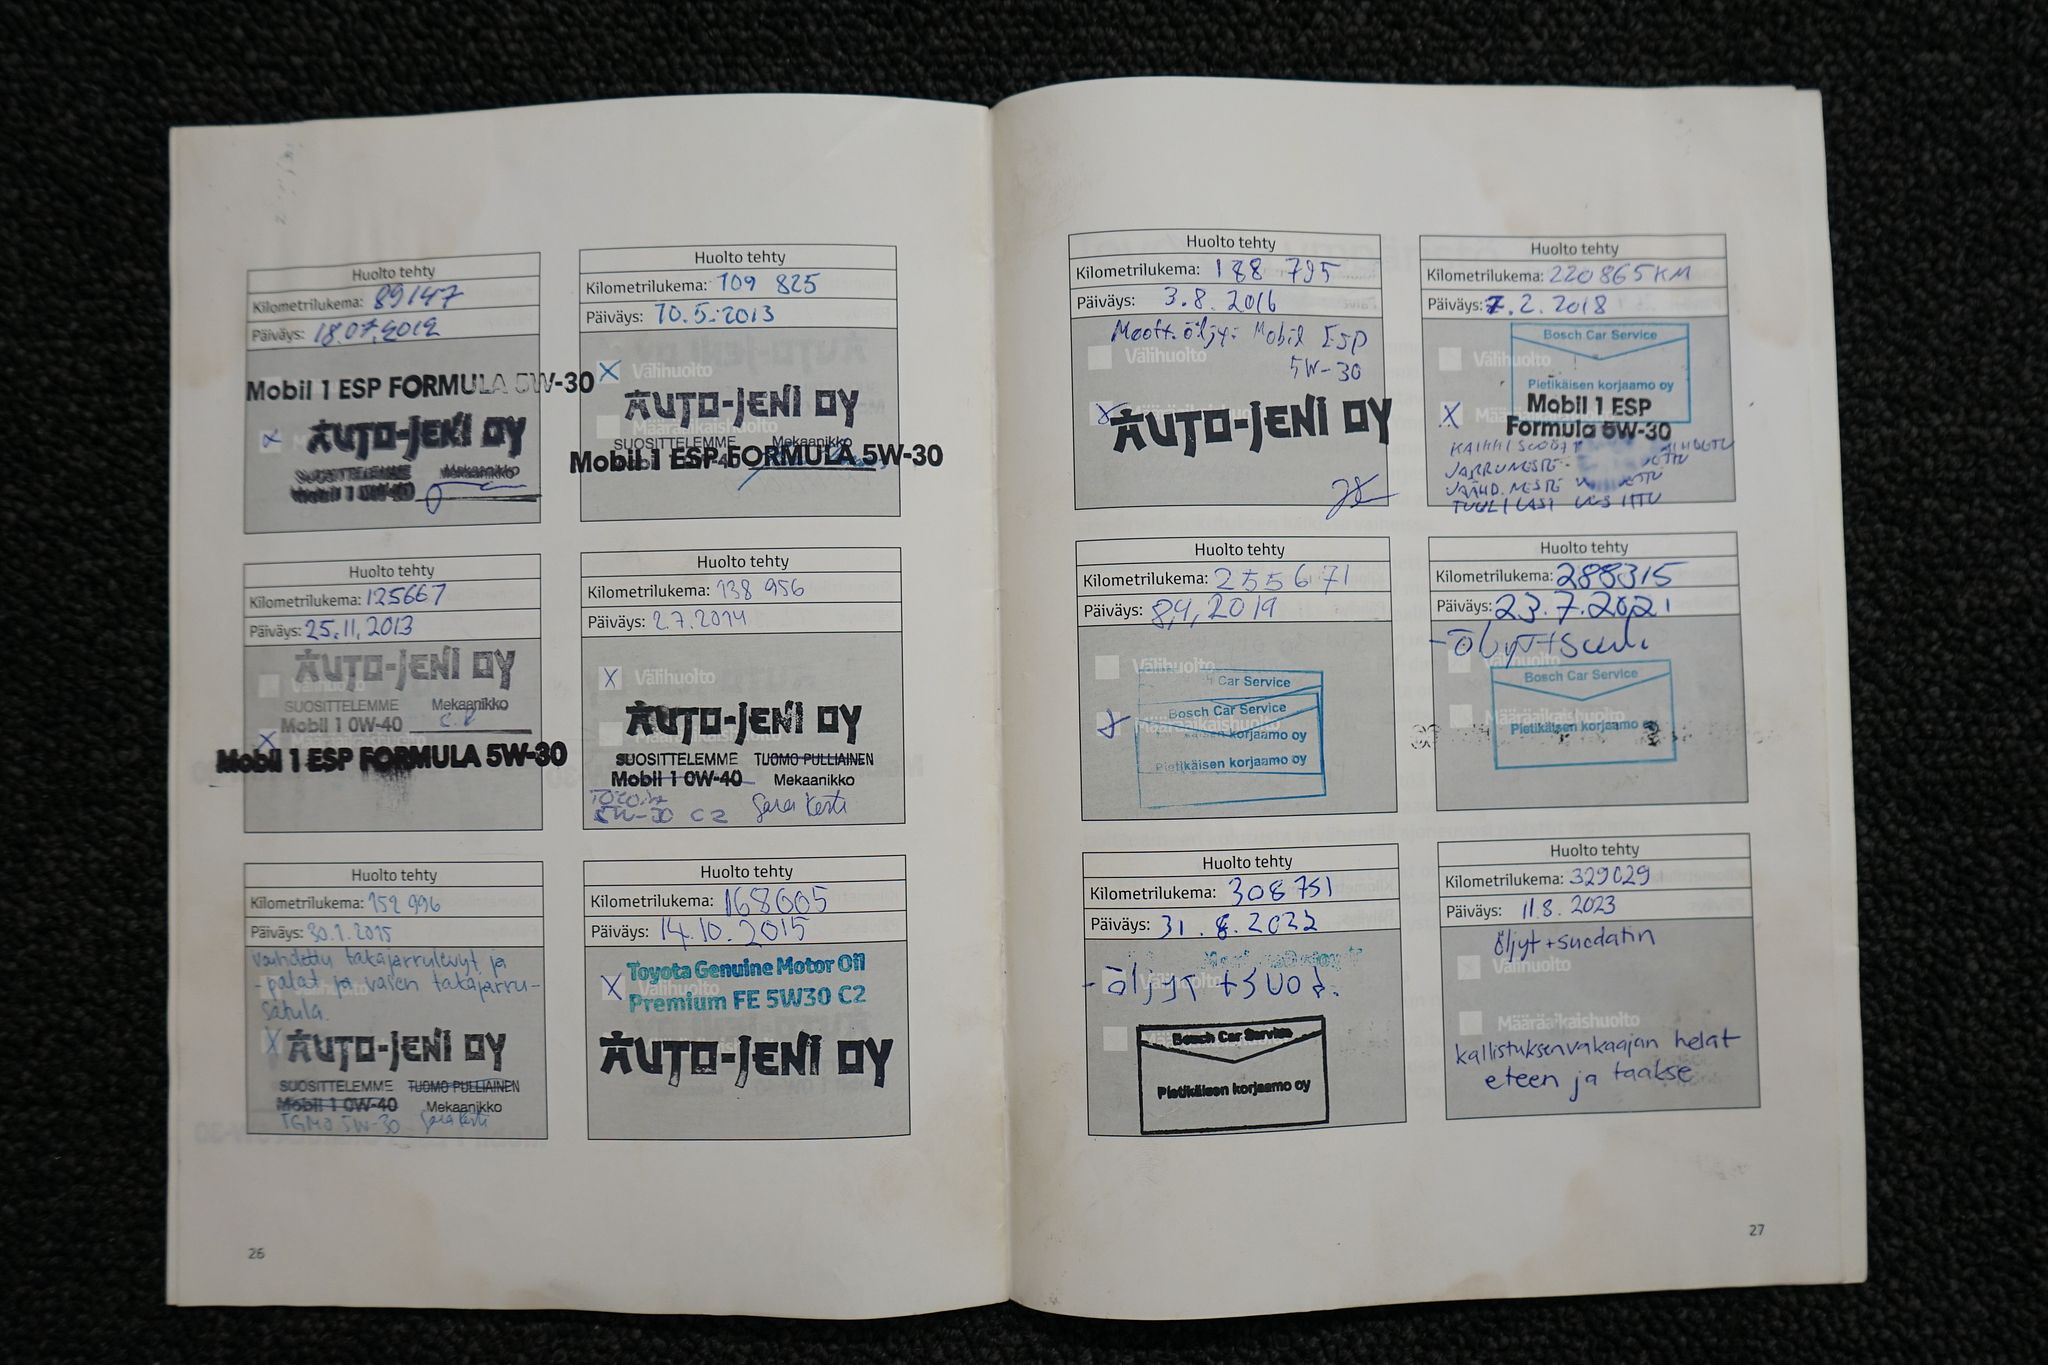 Huolto tehty
Kilometrilukema: 89147
Päiväys: 18.07.2012
Mobil 1 ESP FORMULA 5W-30
AUTO-JENI OY
SUOSITTELEMME Mekaanikko
Mobil 1 0W-40
Huolto tehty
Kilometrilukema: 109 825
Päiväys: 10.5.2013
X Välihuolto
AUTO-JENI OY
Määräaikaishuolto
SUOSITTELEMME Mekaanikko
Mobil 1 ESP FORMULA 5W-30
Huolto tehty
Kilometrilukema: 125667
Päiväys: 25.11.2013
AUTO-JENI OY
SUOSITTELEMME Mekaanikko
Mobil 1 0W-40
X Määräaikaishuolto
Mobil 1 ESP FORMULA 5W-30
Huolto tehty
Kilometrilukema: 138 956
Päiväys: 2.7.2014
X Välihuolto
AUTO-JENI OY
SUOSITTELEMME TUOMO PULLIAINEN
Mobil 1 0W-40 Mekaanikko
5W-30 C2
Huolto tehty
Kilometrilukema: 152 996
Päiväys: 30.1.2015
vaihdettu takajarrulevyt ja
-palat ja vasen takajarru-
satula.
X AUTO-JENI OY
SUOSITTELEMME TUOMO PULLIAINEN
Mobil 1 0W-40 Mekaanikko
TGMO 5W-30
Huolto tehty
Kilometrilukema: 168605
Päiväys: 14.10.2015
Toyota Genuine Motor Oil
X Välihuolto
Premium FE 5W30 C2
AUTO-JENI OY
26
Huolto tehty
Kilometrilukema: 188 795
Päiväys: 3.8.2016
Moott.öljy: Mobil ESP
Välihuolto
5W-30
X Määräaikaishuolto
AUTO-JENI OY
Huolto tehty
Kilometrilukema: 220865 KM
Päiväys: 7.2.2018
Bosch Car Service
Välihuolto
Pietikäisen korjaamo oy
X Mobil 1 ESP
Formula 5W-30
JARRUNESTE
TUULILASI
Huolto tehty
Kilometrilukema: 255671
Päiväys: 8,4,2019
Välihuolto
Car Service
Bosch Car Service
korjaamo oy
Pietikäisen korjaamo oy
Huolto tehty
Kilometrilukema: 288315
Päiväys: 23.7.2021
Bosch Car Service
Määräaikaishuolto
Pietikäisen korjaamo oy
Huolto tehty
Kilometrilukema: 308751
Päiväys: 31.8.2022
- öljyt + suod.
Bosch Car Service
Pietikäisen korjaamo oy
Huolto tehty
Kilometrilukema: 329029
Päiväys: 11.8.2023
öljyt + suodatin
Välihuolto
Määräaikaishuolto
kallistuksenvakaajan helat
eteen ja taakse
27